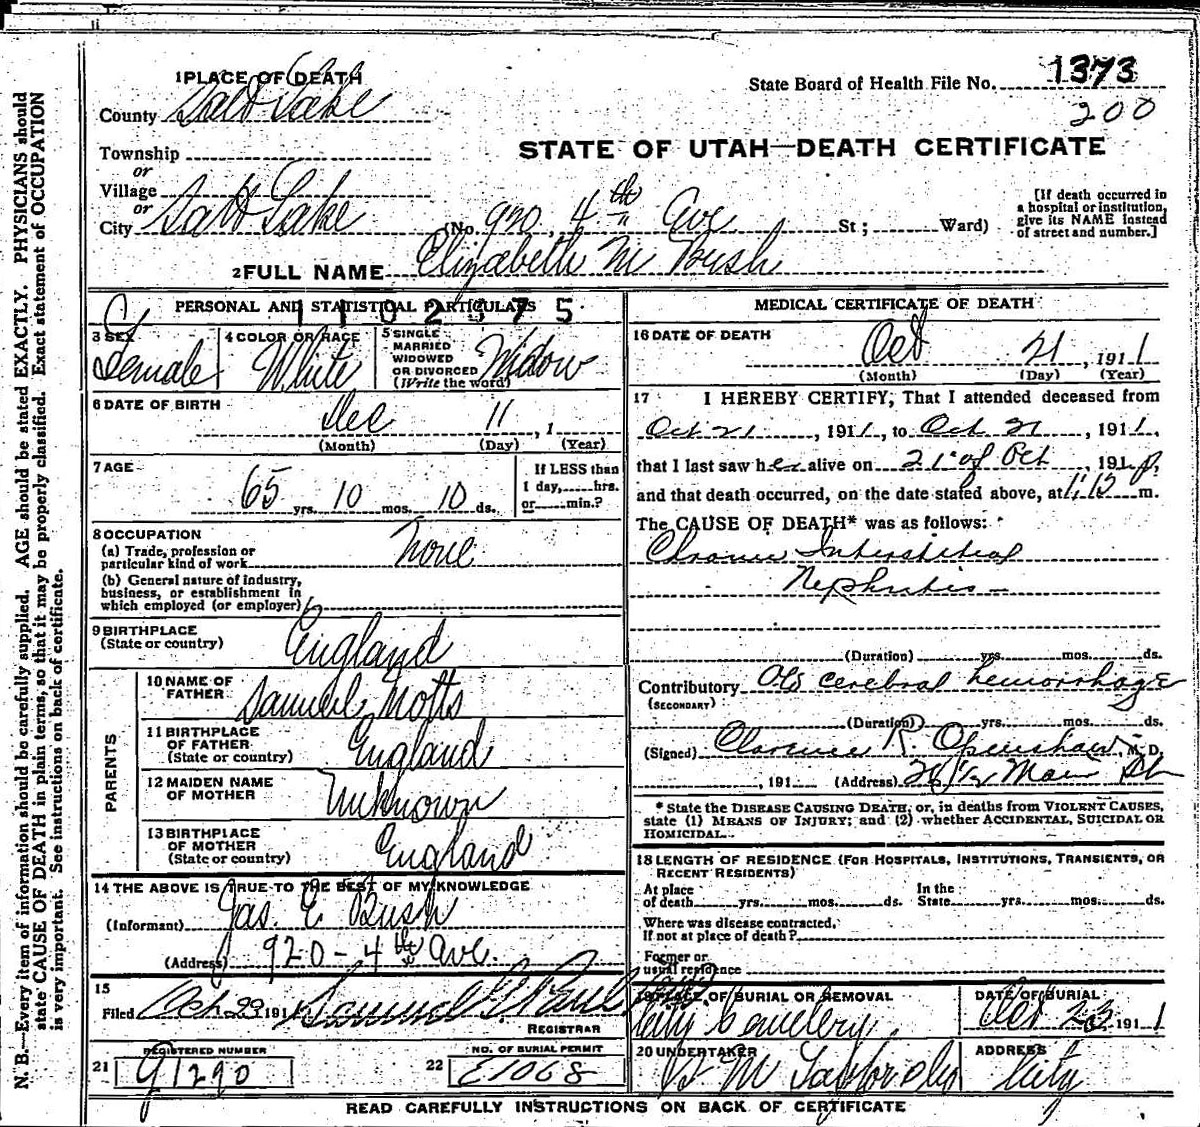 1 PLACE OF DEATH
County Salt Lake
Township
or
Village
or
City Salt Lake (No. 920 4th Ave St; Ward)
State Board of Health File No. 1373
200
STATE OF UTAH—DEATH CERTIFICATE
[If death occurred in
a hospital or institution,
give its NAME instead
of street and number.]
2 FULL NAME Elizabeth M Bush
PERSONAL AND STATISTICAL PARTICULARS
1102375
3 SEX
Female
4 COLOR OR RACE
White
5 SINGLE
MARRIED
WIDOWED
OR DIVORCED
(Write the word)
Widow
6 DATE OF BIRTH
Dec 11, 1
(Month) (Day) (Year)
7 AGE
65 yrs. 10 mos. 10 ds.
If LESS than
1 day, hrs.
or min.?
8 OCCUPATION
(a) Trade, profession or
particular kind of work None
(b) General nature of industry,
business, or establishment in
which employed (or employer)
9 BIRTHPLACE
(State or country) England
PARENTS
10 NAME OF
FATHER Samuel Motts
11 BIRTHPLACE
OF FATHER
(State or country) England
12 MAIDEN NAME
OF MOTHER Unknown
13 BIRTHPLACE
OF MOTHER
(State or country) England
14 THE ABOVE IS TRUE TO THE BEST OF MY KNOWLEDGE
(Informant) Jas. E Bush
(Address) 920 - 4th Ave.
15
Filed Oct 23 191 Samuel G. Paul
REGISTRAR
21 REGISTERED NUMBER
91290
22 NO. OF BURIAL PERMIT
E1068
MEDICAL CERTIFICATE OF DEATH
16 DATE OF DEATH
Oct 21, 1911
(Month) (Day) (Year)
17 I HEREBY CERTIFY, That I attended deceased from
Oct 21, 1911, to Oct 21, 1911,
that I last saw her alive on 21 of Oct, 191
and that death occurred, on the date stated above, at m.
The CAUSE OF DEATH* was as follows:
Chronic Interstitial
Nephritis -
(Duration) yrs. mos. ds.
Contributory Old cerebral hemorrhage
(SECONDARY)
(Duration) yrs. mos. ds.
(Signed) Clarence R Openshaw, M. D.
, 191 (Address) 26 1/2 Main St
* State the DISEASE CAUSING DEATH, or, in deaths from VIOLENT CAUSES,
state (1) MEANS OF INJURY; and (2) whether ACCIDENTAL, SUICIDAL OR
HOMICIDAL.
18 LENGTH OF RESIDENCE (FOR HOSPITALS, INSTITUTIONS, TRANSIENTS, OR
RECENT RESIDENTS)
At place
of death yrs. mos. ds.
In the
State yrs. mos. ds.
Where was disease contracted,
If not at place of death?
Former or
usual residence
19 PLACE OF BURIAL OR REMOVAL
City Cemetery
DATE OF BURIAL
Oct 23 1911
20 UNDERTAKER
ADDRESS
City
READ CAREFULLY INSTRUCTIONS ON BACK OF CERTIFICATE
N. B.—Every item of information should be carefully supplied. AGE should be stated EXACTLY. PHYSICIANS should
state CAUSE OF DEATH in plain terms, so that it may be properly classified. Exact statement of OCCUPATION
is very important. See instructions on back of certificate.